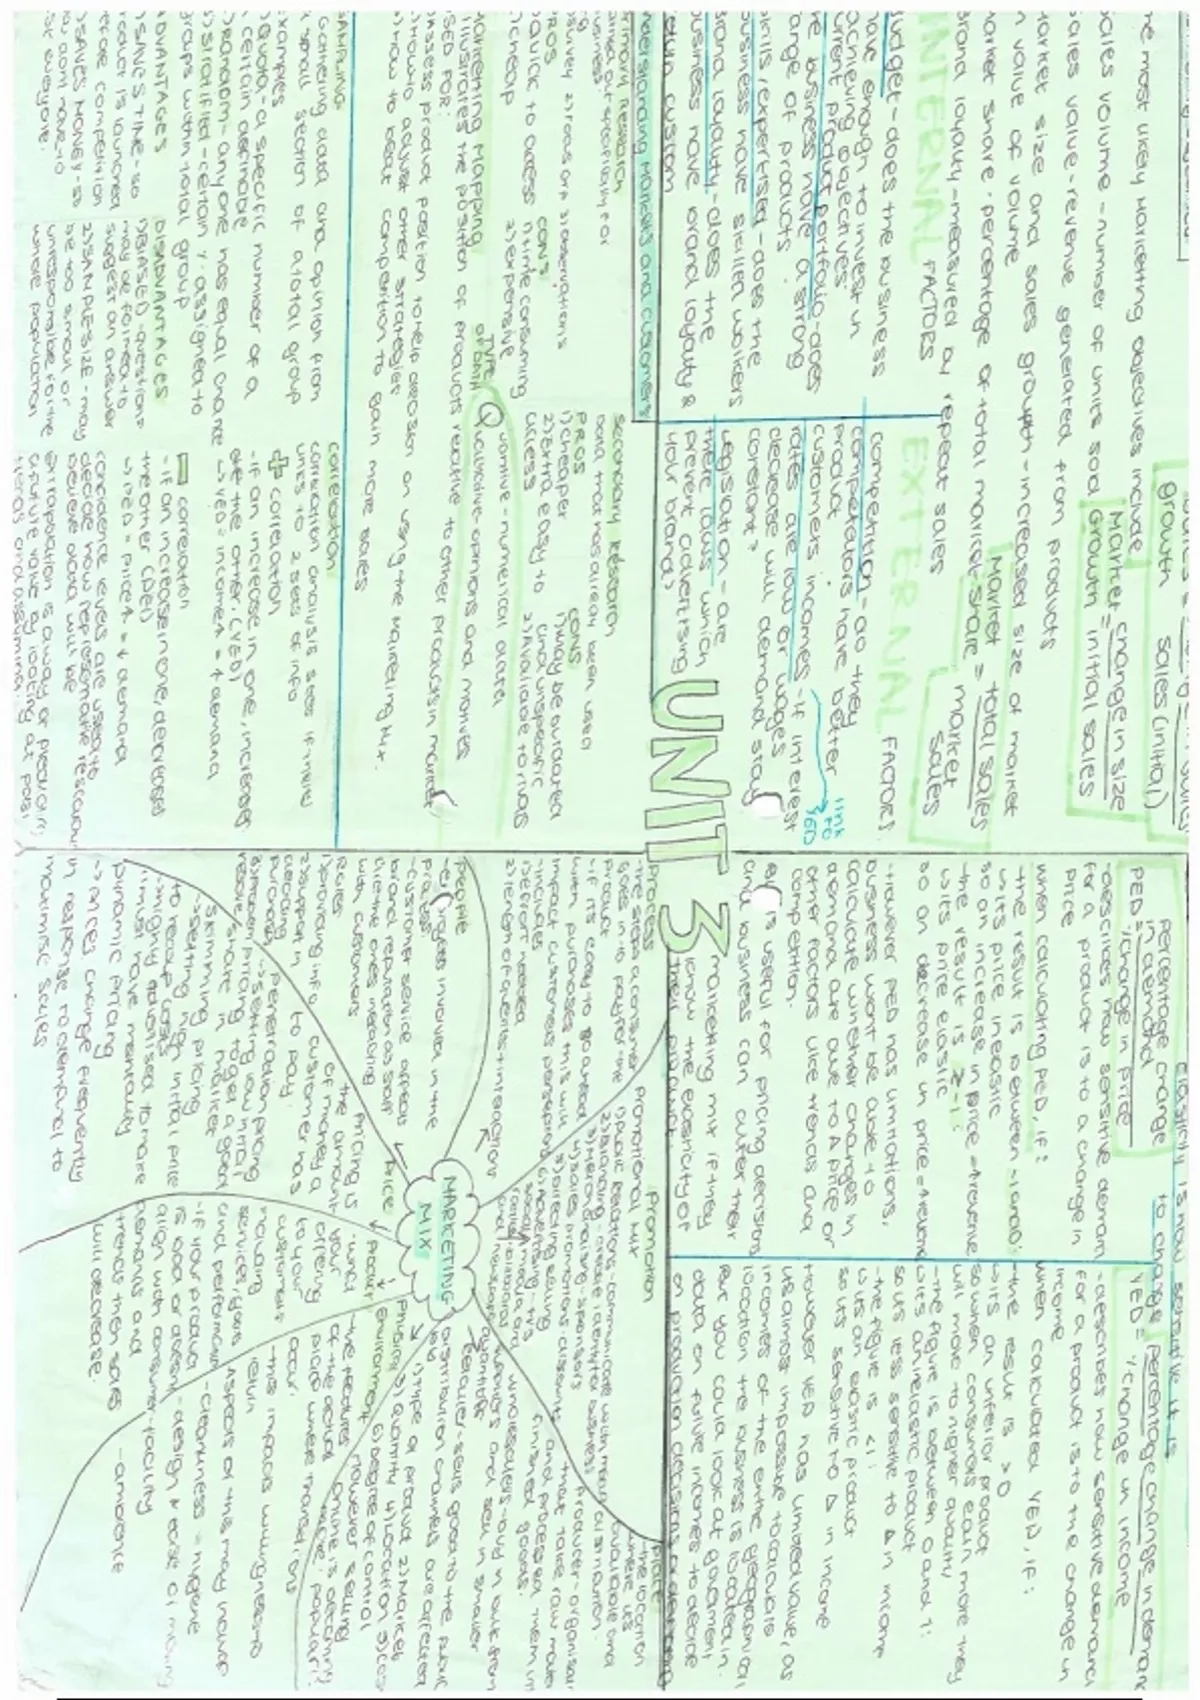 The most likely marketing objectives include
sales volume - number of units sold
sales value - revenue generated from products
market size and sales growth - increased size of market
in value of volume
market share - percentage of total market
brand loyalty - measured by repeat sales
growth
sales (initial)
Market = change in size
Growth initial sales
Market = total sales
share market
sales
INTERNAL FACTORS
budget - does the business
have enough to invest in
achieving objectives
current product portfolio - does
the business have a strong
range of products
skills/expertise - does the
business have skilled workers
brand loyalty - does the
business have brand loyalty &
return custom
EXTERNAL FACTORS
competition - do they
competitors have better
product
customers incomes - if interest
rates are low or wages
decrease will demand stay
constant?
link
to
YED
legislation - are
there laws which
prevent advertising
your brand?
UNIT 3
understanding markets and customers
primary research
carried out specifically for
business
1) survey 2) focus grp 3) observations
PROS
quick to access
1) cheap
CONS
1) time consuming
2) expensive
secondary research
data that has already been used
PROS
1) cheaper
2) extra easy to
access
CONS
1) may be outdated
and unspecific
2) Available to rivals
TYPE
of DATA
Quantitive - numerical data
Qualitative - opinions and motives
marketing mapping
illustrates the position of products relative to other products in market
USED FOR:
assess product position to help decision on using the marketing mix.
how to adjust other strategies
how to beat competition to gain more sales
SAMPLING
Gathering data and opinion from
a small section of a total group
examples
1) Quota - a specific number of a
certain desirable
2) Random - anyone has equal chance
3) Stratified - certain % assigned to
groups with total group
ADVANTAGES
1) SAVES TIME - so
product is launched
before competition
2) SAVES MONEY - so
you dont have to
ask everyone.
DISADVANTAGES
1) BIASED - questions
may be formed to
suggest an answer
2) SAMPLE SIZE - may
be too small or
unresponsible for the
whole population
correlation
correlation analysis sees if there
links to 2 sets of info
+ correlation
- if an increase in one, increases
the other. (YED)
↳ YED = income ↑ = ↑ demand
- correlation
- if an increase in one, decreases
the other (PED)
↳ PED = price ↑ = ↓ demand
confidence levels are used to
decide how representative research
believe data will be
extrapolation is a way of predicting
a future value by looking at past
trends and assuming.
elasticity is how sensitive it is
to change
PED = percentage change
in demand
% change in price
- describes how sensitive demand
for a product is to a change in
price
when calculating PED, if:
- the result is between -1 and 0:
↳ its price inelastic
so on increase in price = ↑ revenue
- the result is > -1:
↳ its price elastic
so on decrease in price = ↑ revenue
- however PED has limitations,
business wont be able to
calculate whether changes in
demand are due to a price or
other factors like trends and
competition.
PED is useful for pricing decisions
and business can alter their
marketing mix if they
know the elasticity of
their product
YED = percentage change in demand
% change in income
- describes how sensitive demand
for a product is to the change in
income
when calculated YED, if:
- the result is > 0
↳ its an inferior product
so when consumers earn more they
will move to higher quality
- the figure is between 0 and 1:
↳ its an inelastic product
so its less sensitive to Δ in income
- the figure is < 1:
↳ its an elastic product
so its sensitive to Δ in income
However YED has limited value, as
its almost impossible to calculate
incomes of the entire geographical
location the business is located in.
But you could look at government
data on future incomes to decide
on production decisions
MARKETING
MIX
process
- the steps a consumer
goes in to pay for the
- if its easy to go ahead
with purchases this will
impact customers perception
- includes
1) effort needed
2) length of queries + interactions
people
- employees involved in the
process
- customer service affects
brand reputation as staff
are the ones interacting
with customers
Roles
1) providing info
2) support in
decision
purchasing
3) problem
resolve
Price
Pricing is
the amount
of money a
customer has
to pay.
penetration pricing
↳ setting low initial
pricing to get a good
share in market
skimming pricing
- setting high initial price
to recoup costs
↳ highly advertised to make
it must have mentality
dynamic pricing
↳ prices change frequently
in response to demand to
maximise sales
Product
- what
your
offering
to your
customers
including
services, goods
and performance
- if your product
is bad or doesnt
align with consumer
demands and
trends then sales
will decrease
- design
- facility
Physical
environment
- the features
of the actual
place where transactions
occur.
- this impacts willingness to
return
Aspects of this may include
- cleanliness = hygiene
- ambience
Promotion
Promotional mix
1) public relations - communicate with media
2) branding - create identity for business
3) merchandising
4) sales promotions - discounts
5) direct selling
6) Advertising - tvs
social media and
billboards
newspapers
Place
- the location
where its
available and
distribution.
Producer - organisation
that take raw materials
and process them into
finished goods.
wholesalers - buy in bulk from
suppliers and sell in smaller
quantities
Retailer - sells good to the public
distribution channels are affected
by
1) type of product 2) market
3) Quantity 4) location 5) cost
6) degree of control
However selling
online is becoming
more popular